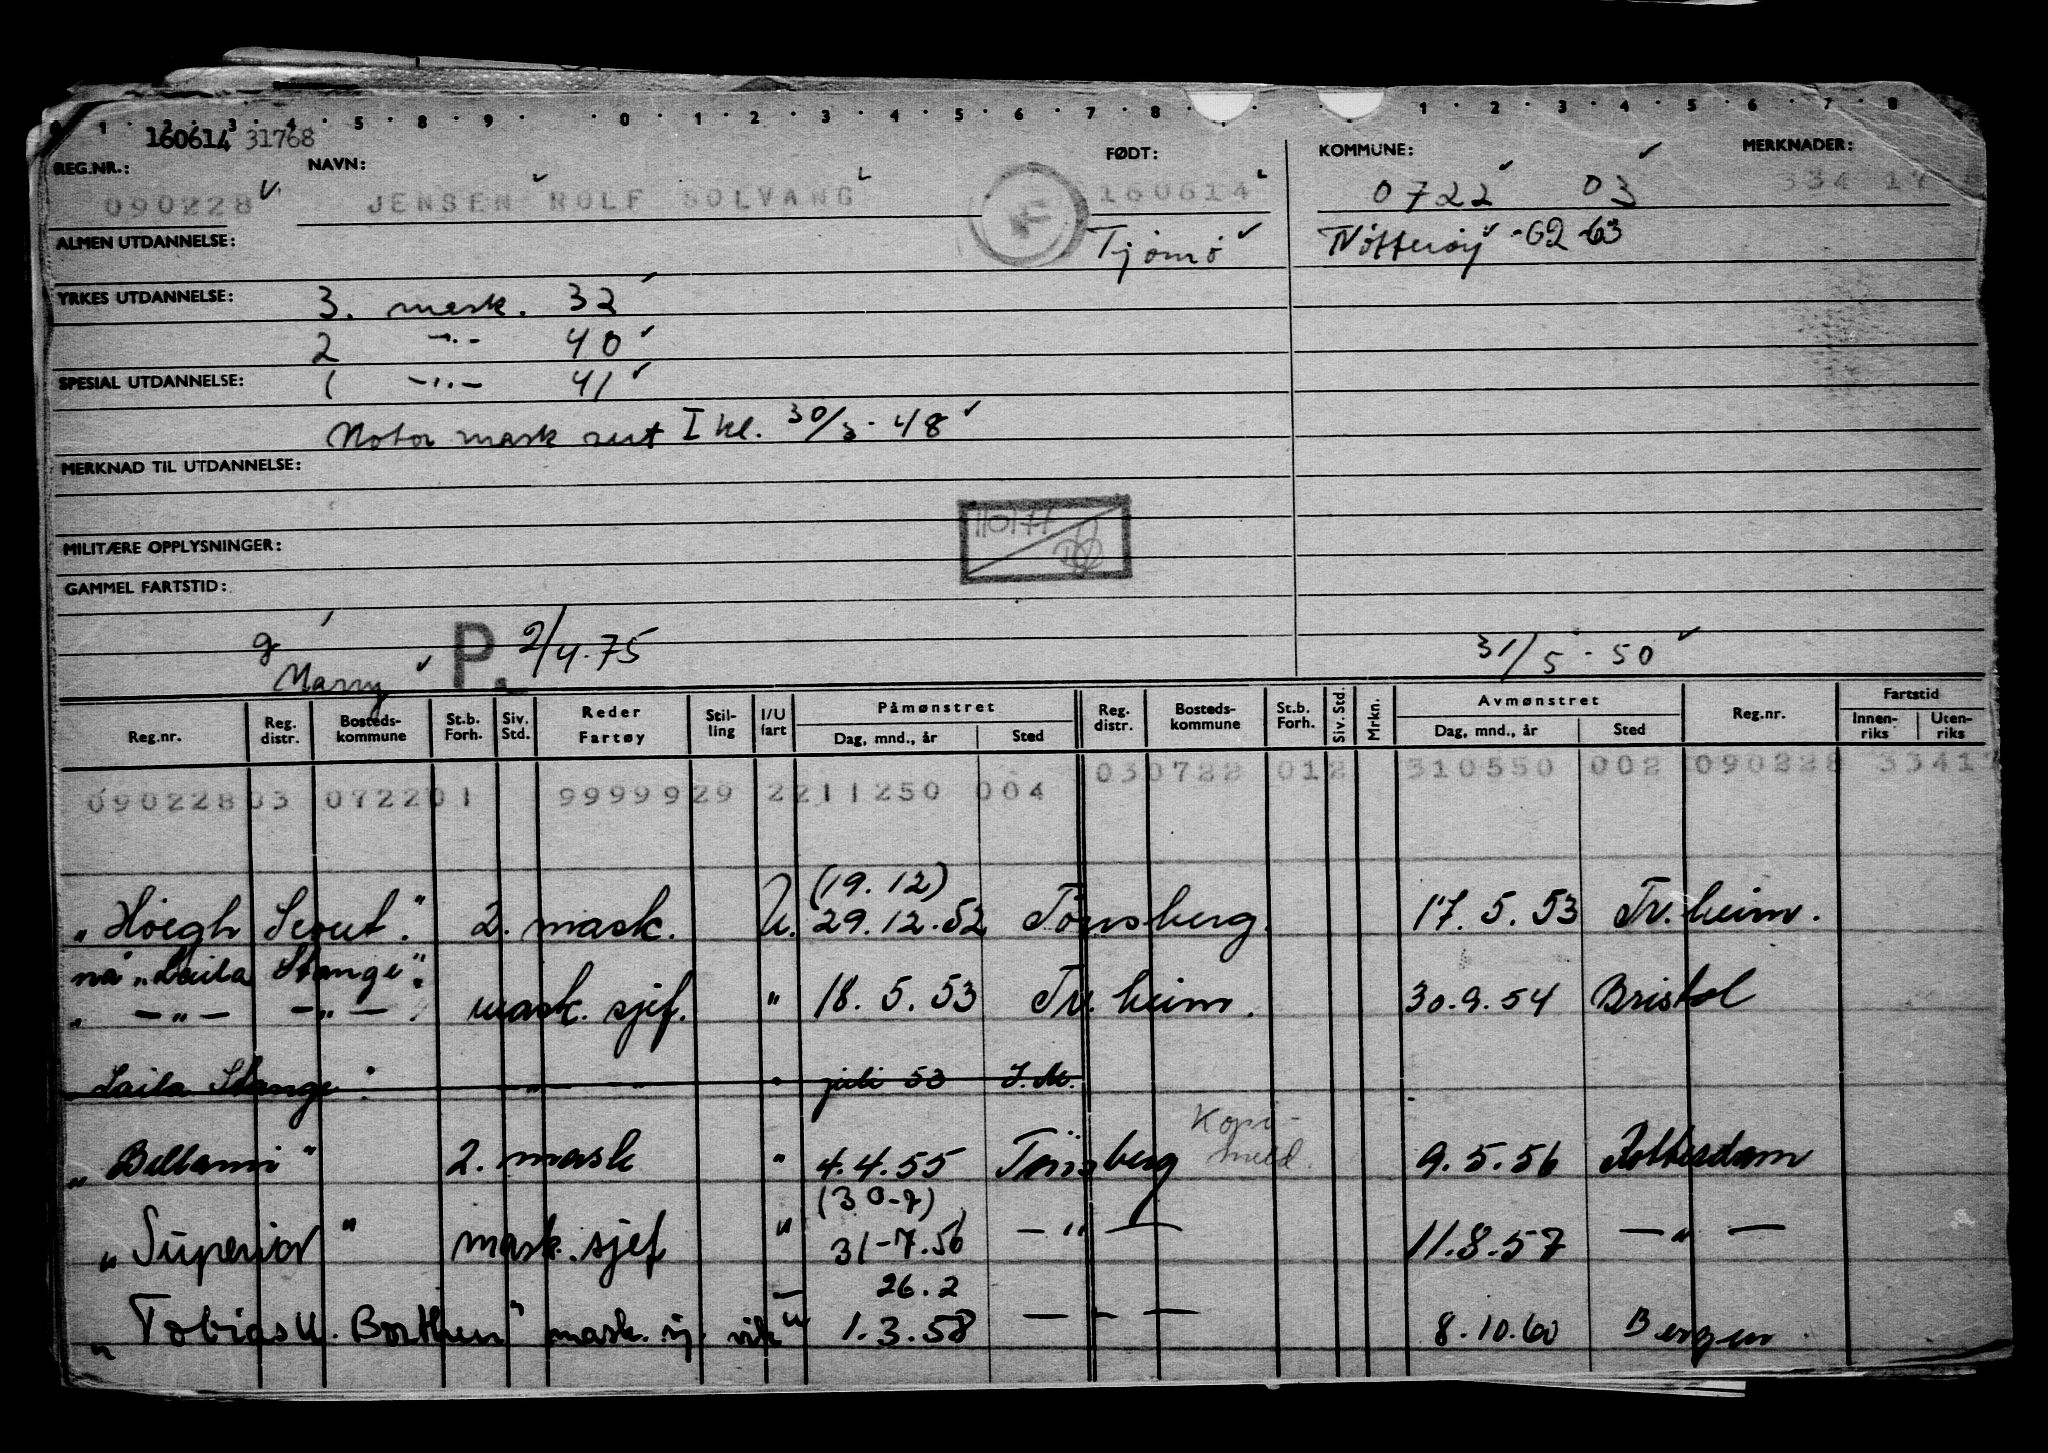 1 2 3 4 5 8 9 0 1 2 3 4 5 6 7 8 1 2 3 4 5 6 7 8
160614 31768
REG.NR.: NAVN: FØDT: KOMMUNE: MERKNADER:
090228 JENSEN ROLF SOLVANG 160614 0722 03 334 17
ALMEN UTDANNELSE: Tjømø Nøtterøy -62-63
YRKES UTDANNELSE: 3. mask. 32
2 -"- 40
SPESIAL UTDANNELSE: 1 -"- 41
Motor mask sert I kl. 30/3-48
MERKNAD TIL UTDANNELSE:
110177
MILITÆRE OPPLYSNINGER:
GAMMEL FARTSTID:
g P. 2/4.75 31/5-50
Marry
Reg.nr. Reg. distr. Bosteds-kommune St.b. Forh. Siv. Std. Reder Fartøy Stil-ling I/U fart Påmønstret Dag, mnd., år Sted Reg. distr. Bosteds-kommune St.b. Forh. Siv. Std. Mrkn. Avmønstret Dag, mnd., år Sted Reg.nr. Fartstid Innen-riks Uten-riks
09022803 072201 9999929 2211250 004 030722 012 310550 002 090228 33417
(19.12)
"Höegh Scout". 2. mask. U. 29.12.52 Tönsberg. 17.5.53 Tr.heim.
nå "Laila Stange".
" -"- -"- mask. sjef. " 18.5.53 Tr.heim. 30.9.54 Bristol
Laila Stange". " " " juli 53
Kopi-
"Bellami" 2. mask " 4.4.55 Tönsberg 9.5.56 Rotterdam
(30-7)
"Superior" mask.sjef " 31-7.56 -"- 11.8.57 -"-
26.2
"Tobias U. Borthen" mask. sj. vik " 1.3.58 -"- 8.10.60 Bergen